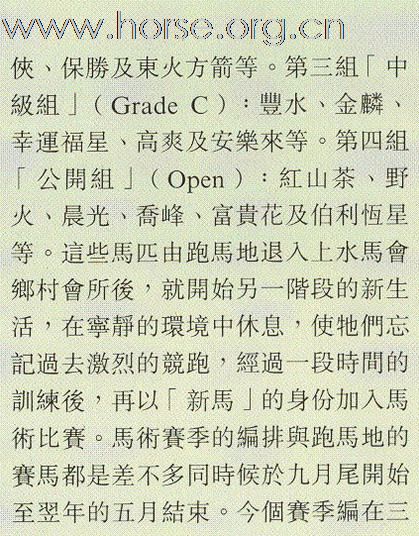 www.horse.org.cn
俠、保勝及東火方箭等。第三組「中
級組」（Grade C）：豐水、金麟、
幸運福星、高爽及安樂來等。第四組
「公開組」（Open）：紅山茶、野
火、晨光、喬峰、富貴花及伯利恆星
等。這些馬匹由跑馬地退入上水馬會
鄉村會所後，就開始另一階段的新生
活，在寧靜的環境中休息，使牠們忘
記過去激烈的競跑，經過一段時間的
訓練後，再以「新馬」的身份加入馬
術比賽。馬術賽季的編排與跑馬地的
賽馬都是差不多同時候於九月尾開始
至翌年的五月結束。今個賽季編在三